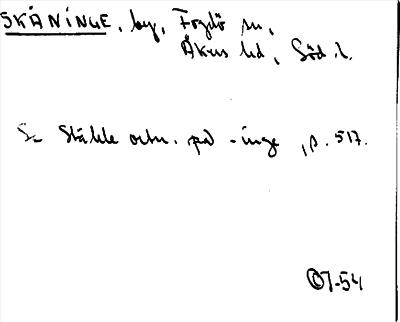 SKÅNINGE, by, Fogdö sn,
Åkers hd, Söd. l.
Se Ståhle ortn. på -inge, s. 517.
7-54